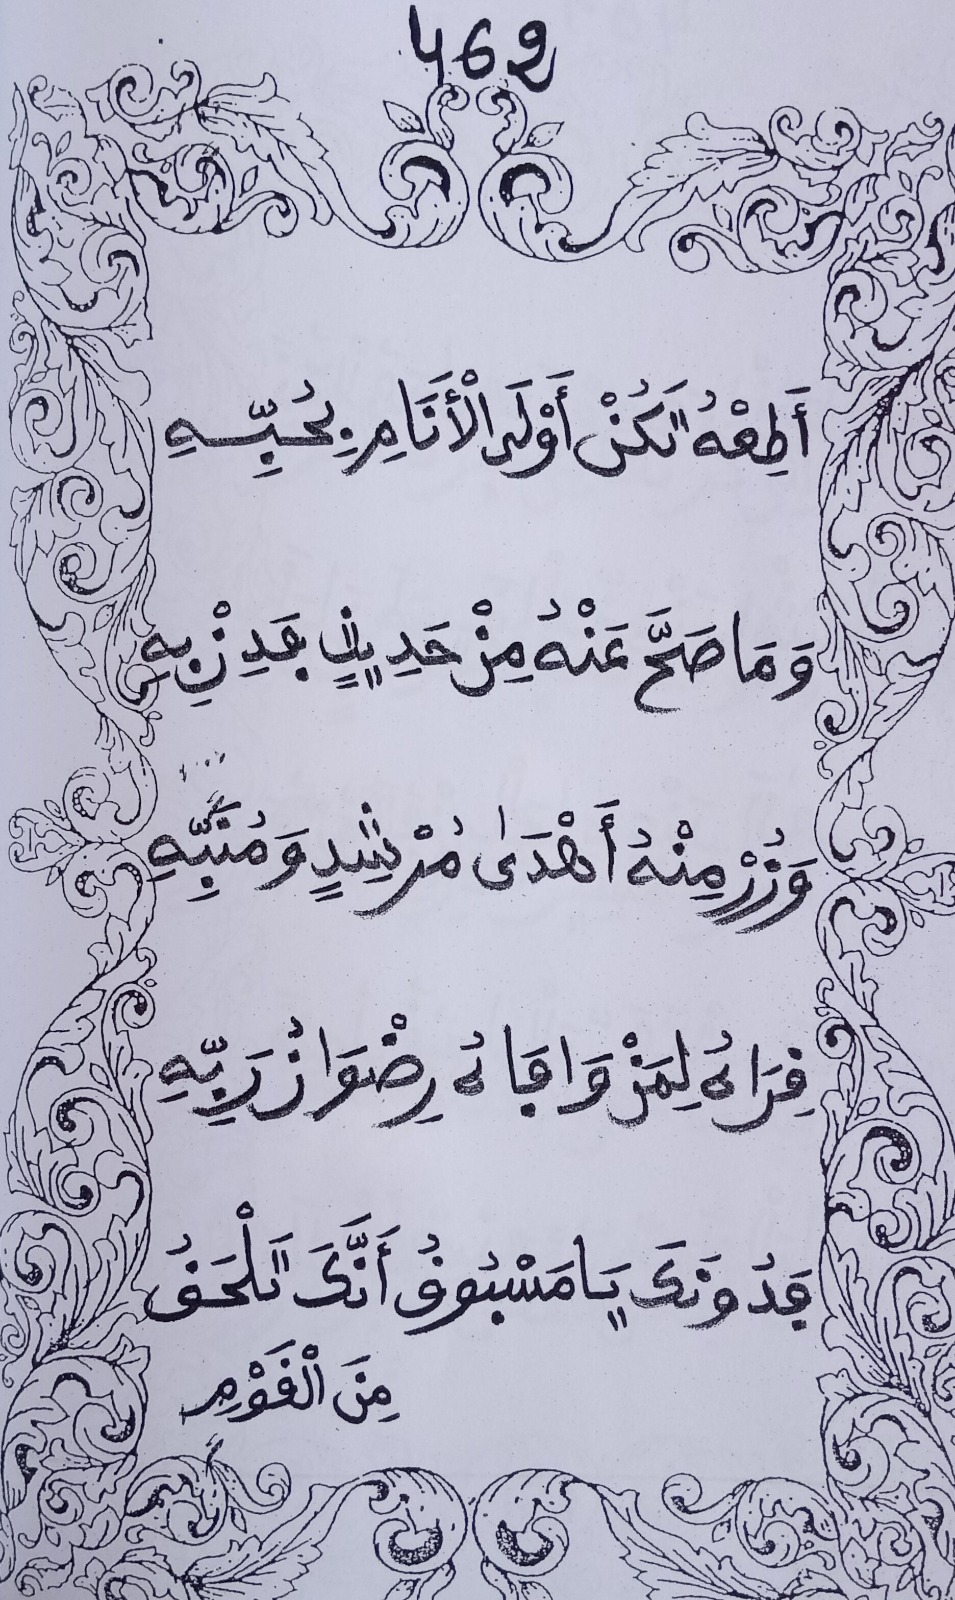 462
أَطِعْهُ تَكُنْ أَوْلَى الْأَنَامِ بِحُبِّهِ
وَمَا صَحَّ عَنْهُ مِنْ حَدِيثٍ فَدِنْ بِهِ
وَزُرْ مِنْهُ أَهْدَى مُرْشِدٍ وَمُنَبِّهِ
قِرَاهُ لِمَنْ وَافَاهُ رِضْوَانُ رَبِّهِ
فَدُونَكَ يَا مَسْبُوقُ أَنَّكَ تَلْحَقُ
مِنَ الْقَوْمِ